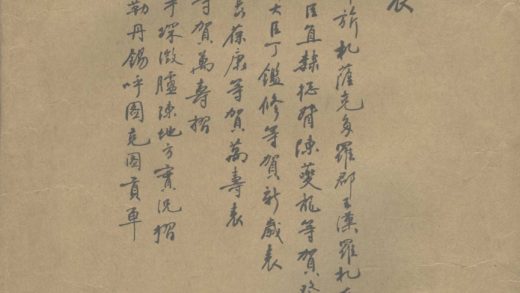 表
旂札薩克多羅郡王漢羅札
臣直隸總督陳夔龍等賀
大臣丁鑑修等賀新歲表
葆康等賀萬壽表
等賀萬壽摺
琛徵臚陳地方實況摺
勒丹錫呼圖克圖貢單